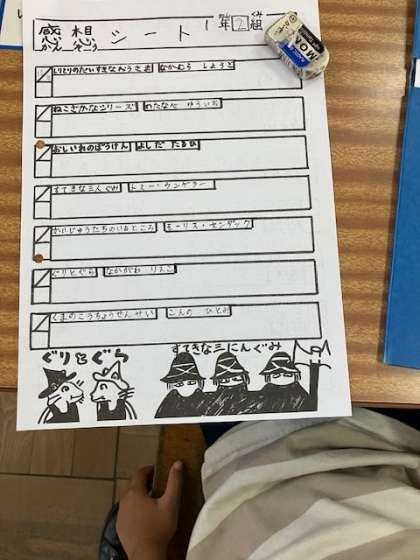 感想シート 1年2組
かんそう ねん くみ
しりとりのだいすきなおうさま なかむら しょうご
ねこざかなシリーズ わたなべ ゆういち
おしいれのぼうけん よしだ たるひ
すてきな三人ぐみ トミー・ウンゲラー
かいじゅうたちのいるところ モーリス・センダック
ぐりとぐら なかがわ りえこ
くまのこうちょうせんせい こんの ひとみ
すてきな三にんぐみ
ぐりとぐら
MONO